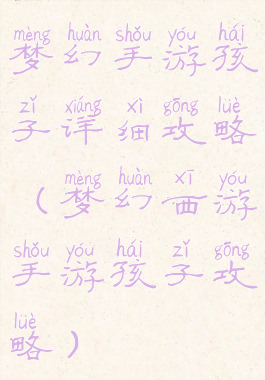 mèng huàn shǒu yóu hái
梦幻手游孩
zǐ xiáng xì gōng lüè
子详细攻略
mèng huàn xī yóu
(梦幻西游
shǒu yóu hái zǐ gōng
手游孩子攻
lüè
略)